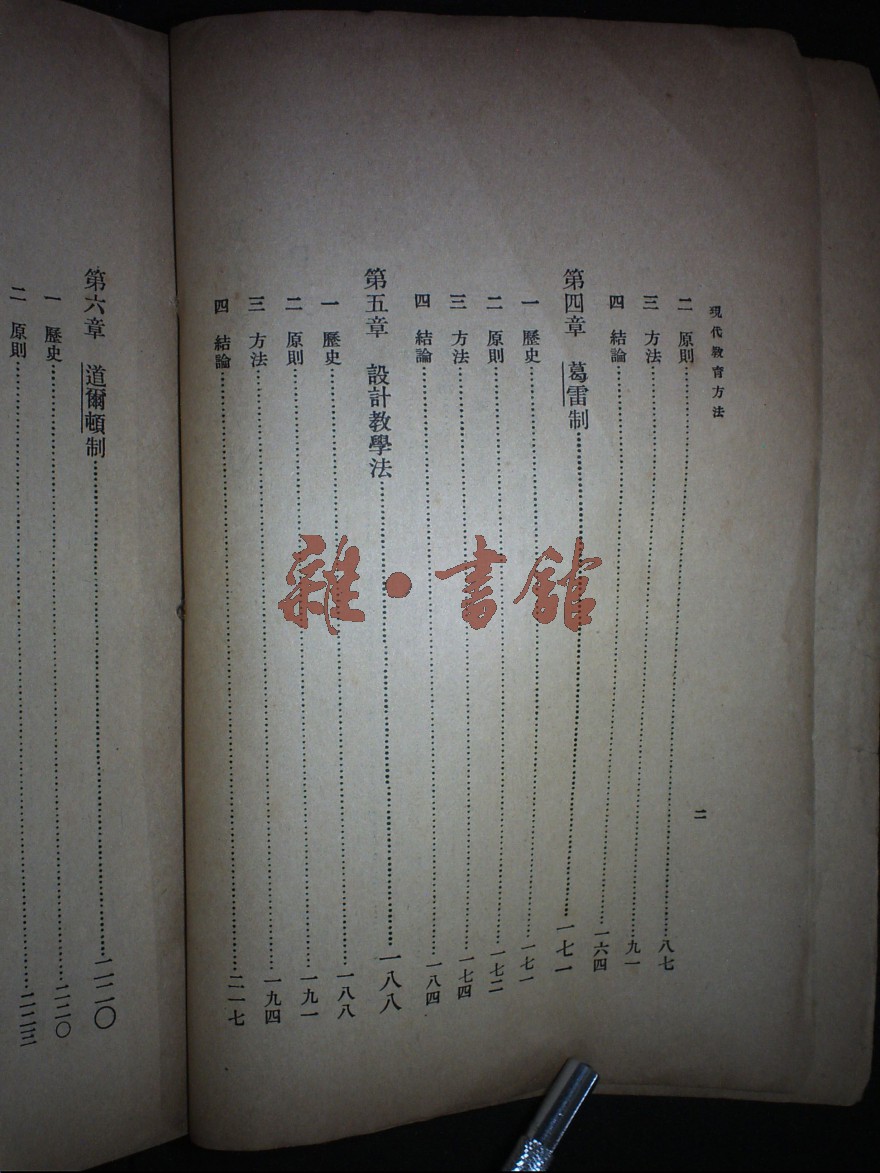 現代教育方法
二
二 原則……八七
三 方法……九一
四 結論……一六四
第四章 葛雷制……一七一
一 歷史……一七一
二 原則……一七二
三 方法……一七四
四 結論……一八四
第五章 設計教學法……一八八
一 歷史……一八八
二 原則……一九一
三 方法……一九四
四 結論……二一七
第六章 道爾頓制……二二〇
一 歷史……二二〇
二 原則……二二三
雜·書館